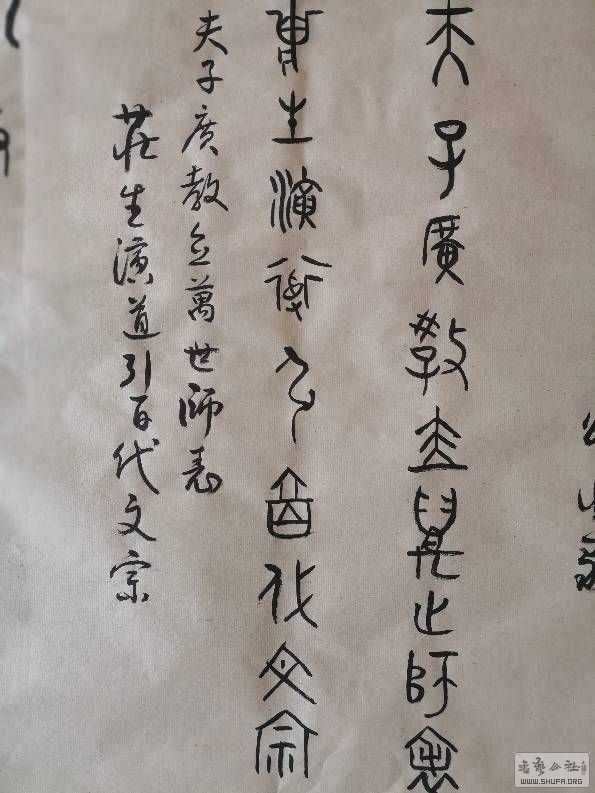 夫子廣教立萬世師表
莊生演道引百代文宗
夫子廣教立萬世師表
莊生演道引百代文宗
书艺公社
WWW.SHUFA.ORG